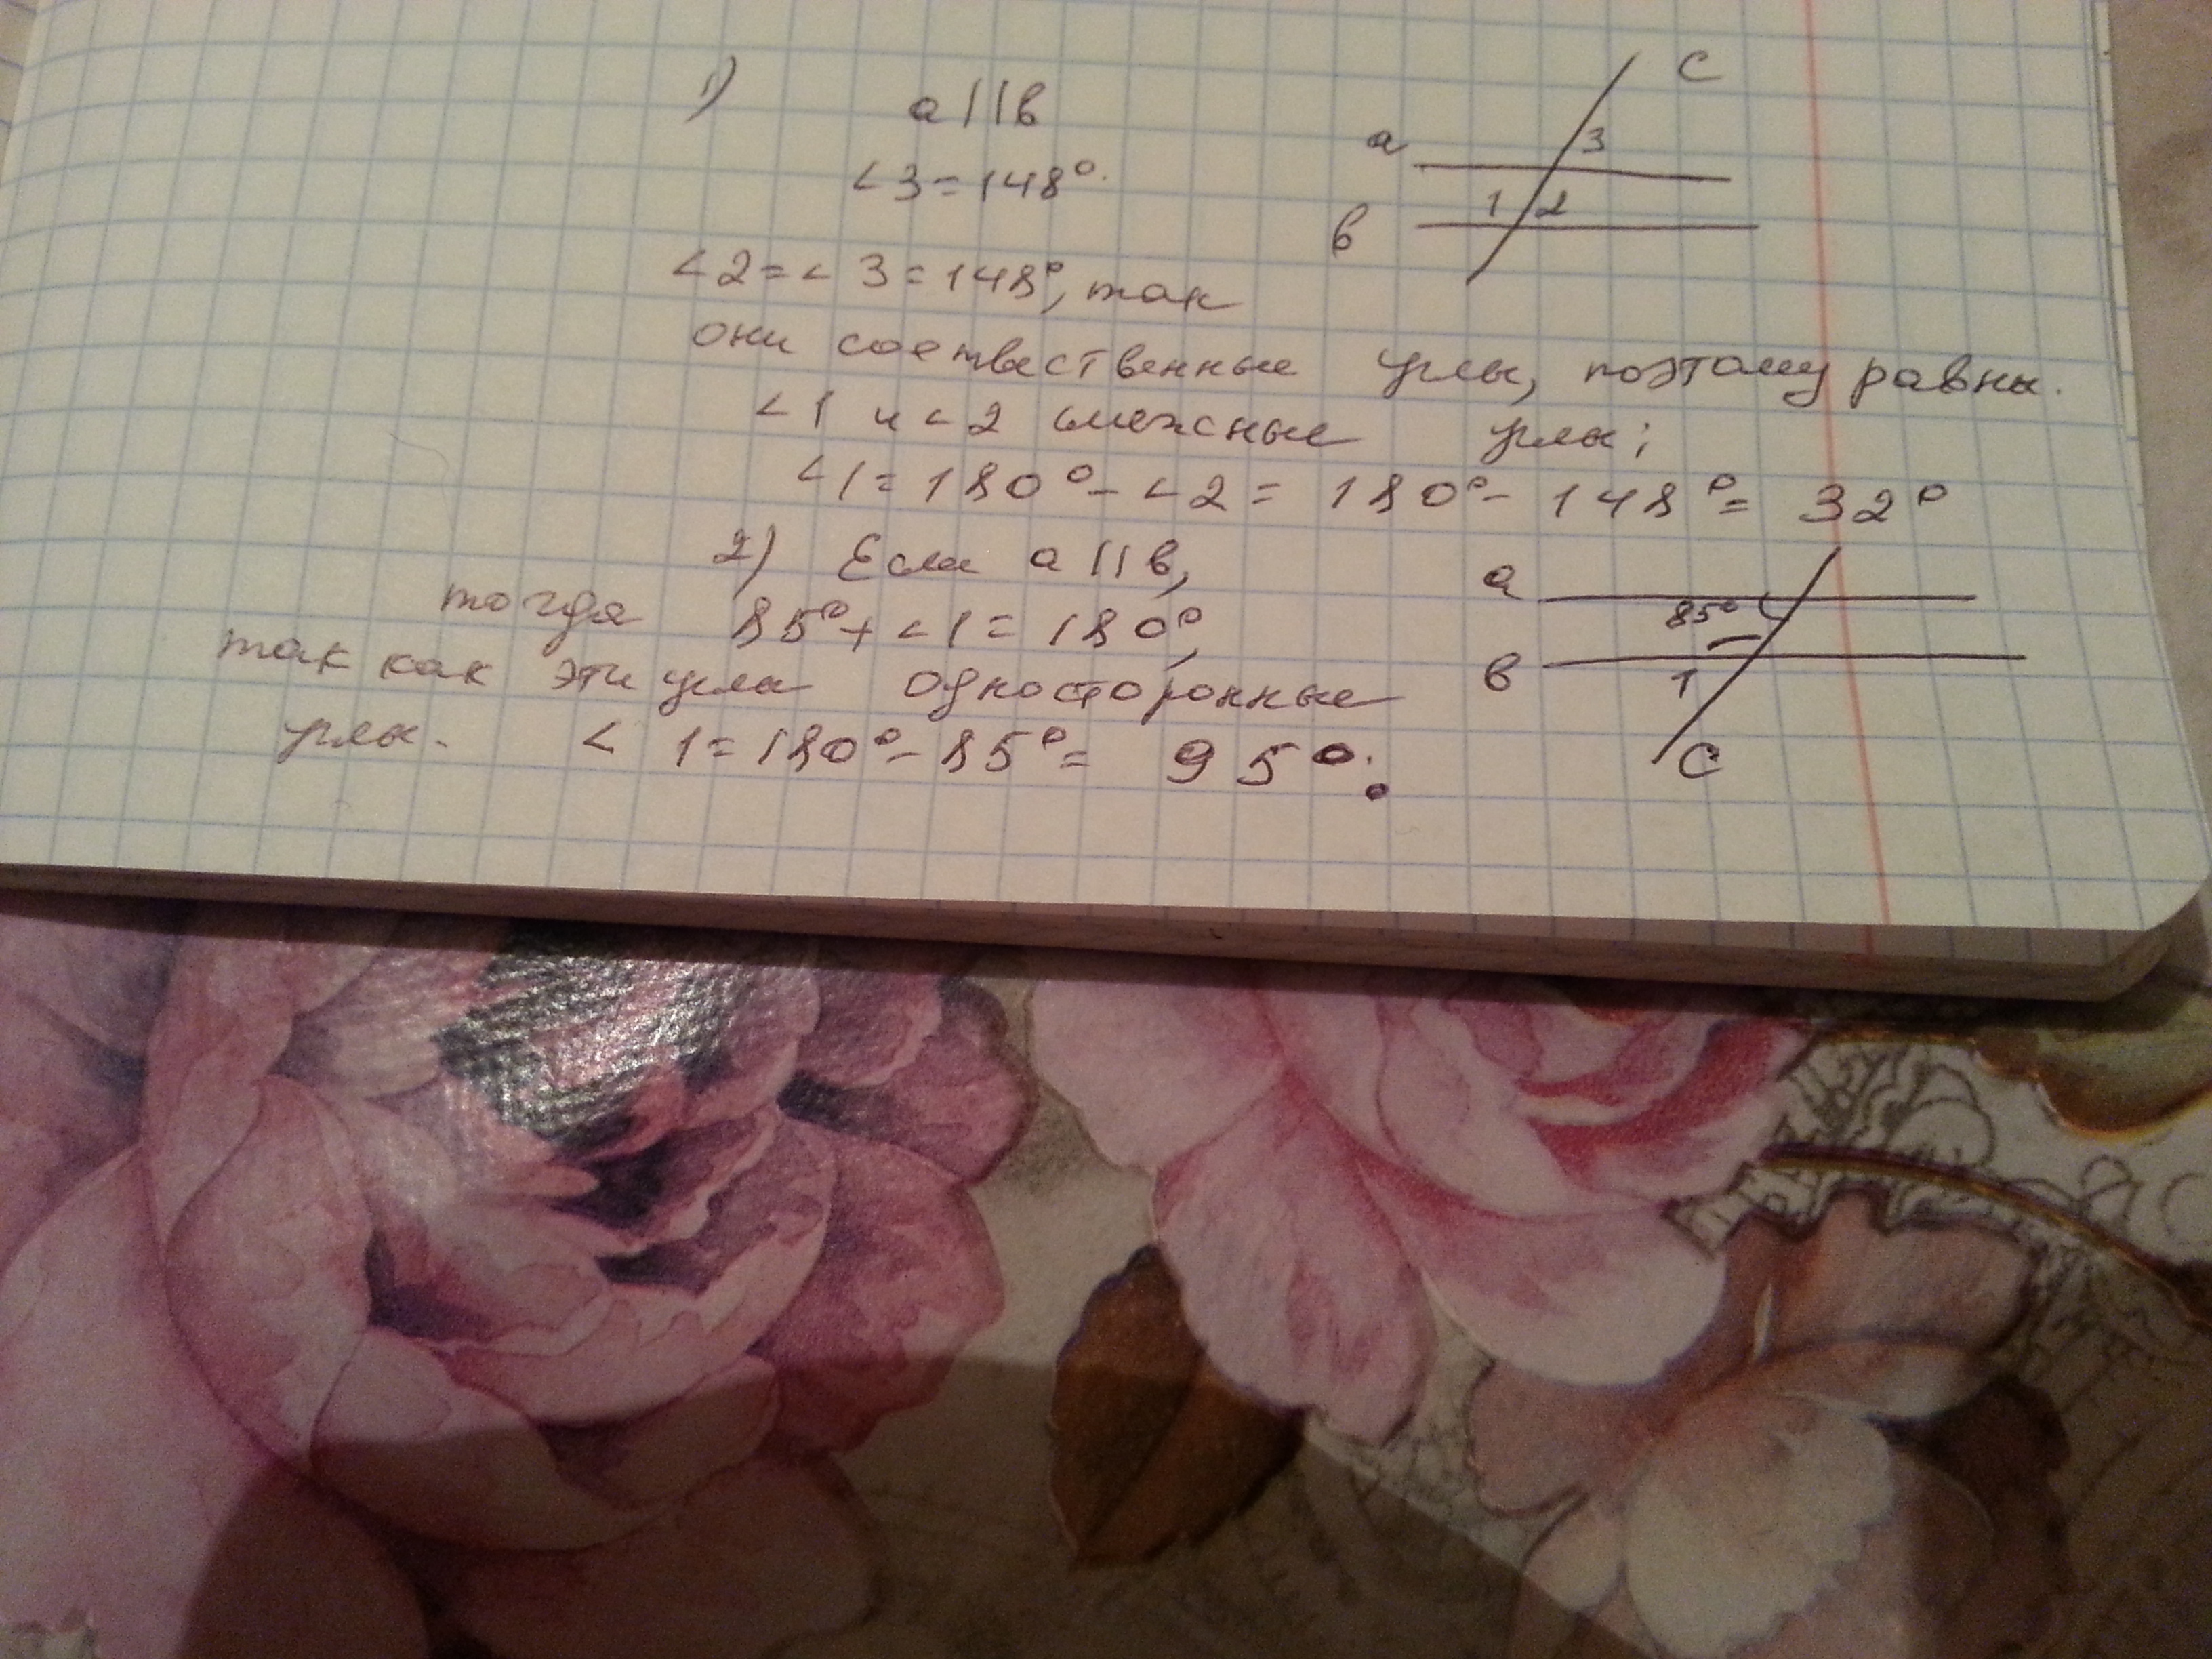 1) a||в
∠3=148°.
c
a
3
1 2
в
∠2=∠3=148°, так
они соетвественные углы, поэтому равны.
∠1 и ∠2 смежные углы;
∠1=180°-∠2=180°-148°=32°
2) Если a||в,
тогда 85°+∠1=180°,
так как эти углы односторонные
углы. ∠1=180°-85°=95°.
a
85°
в
1
C